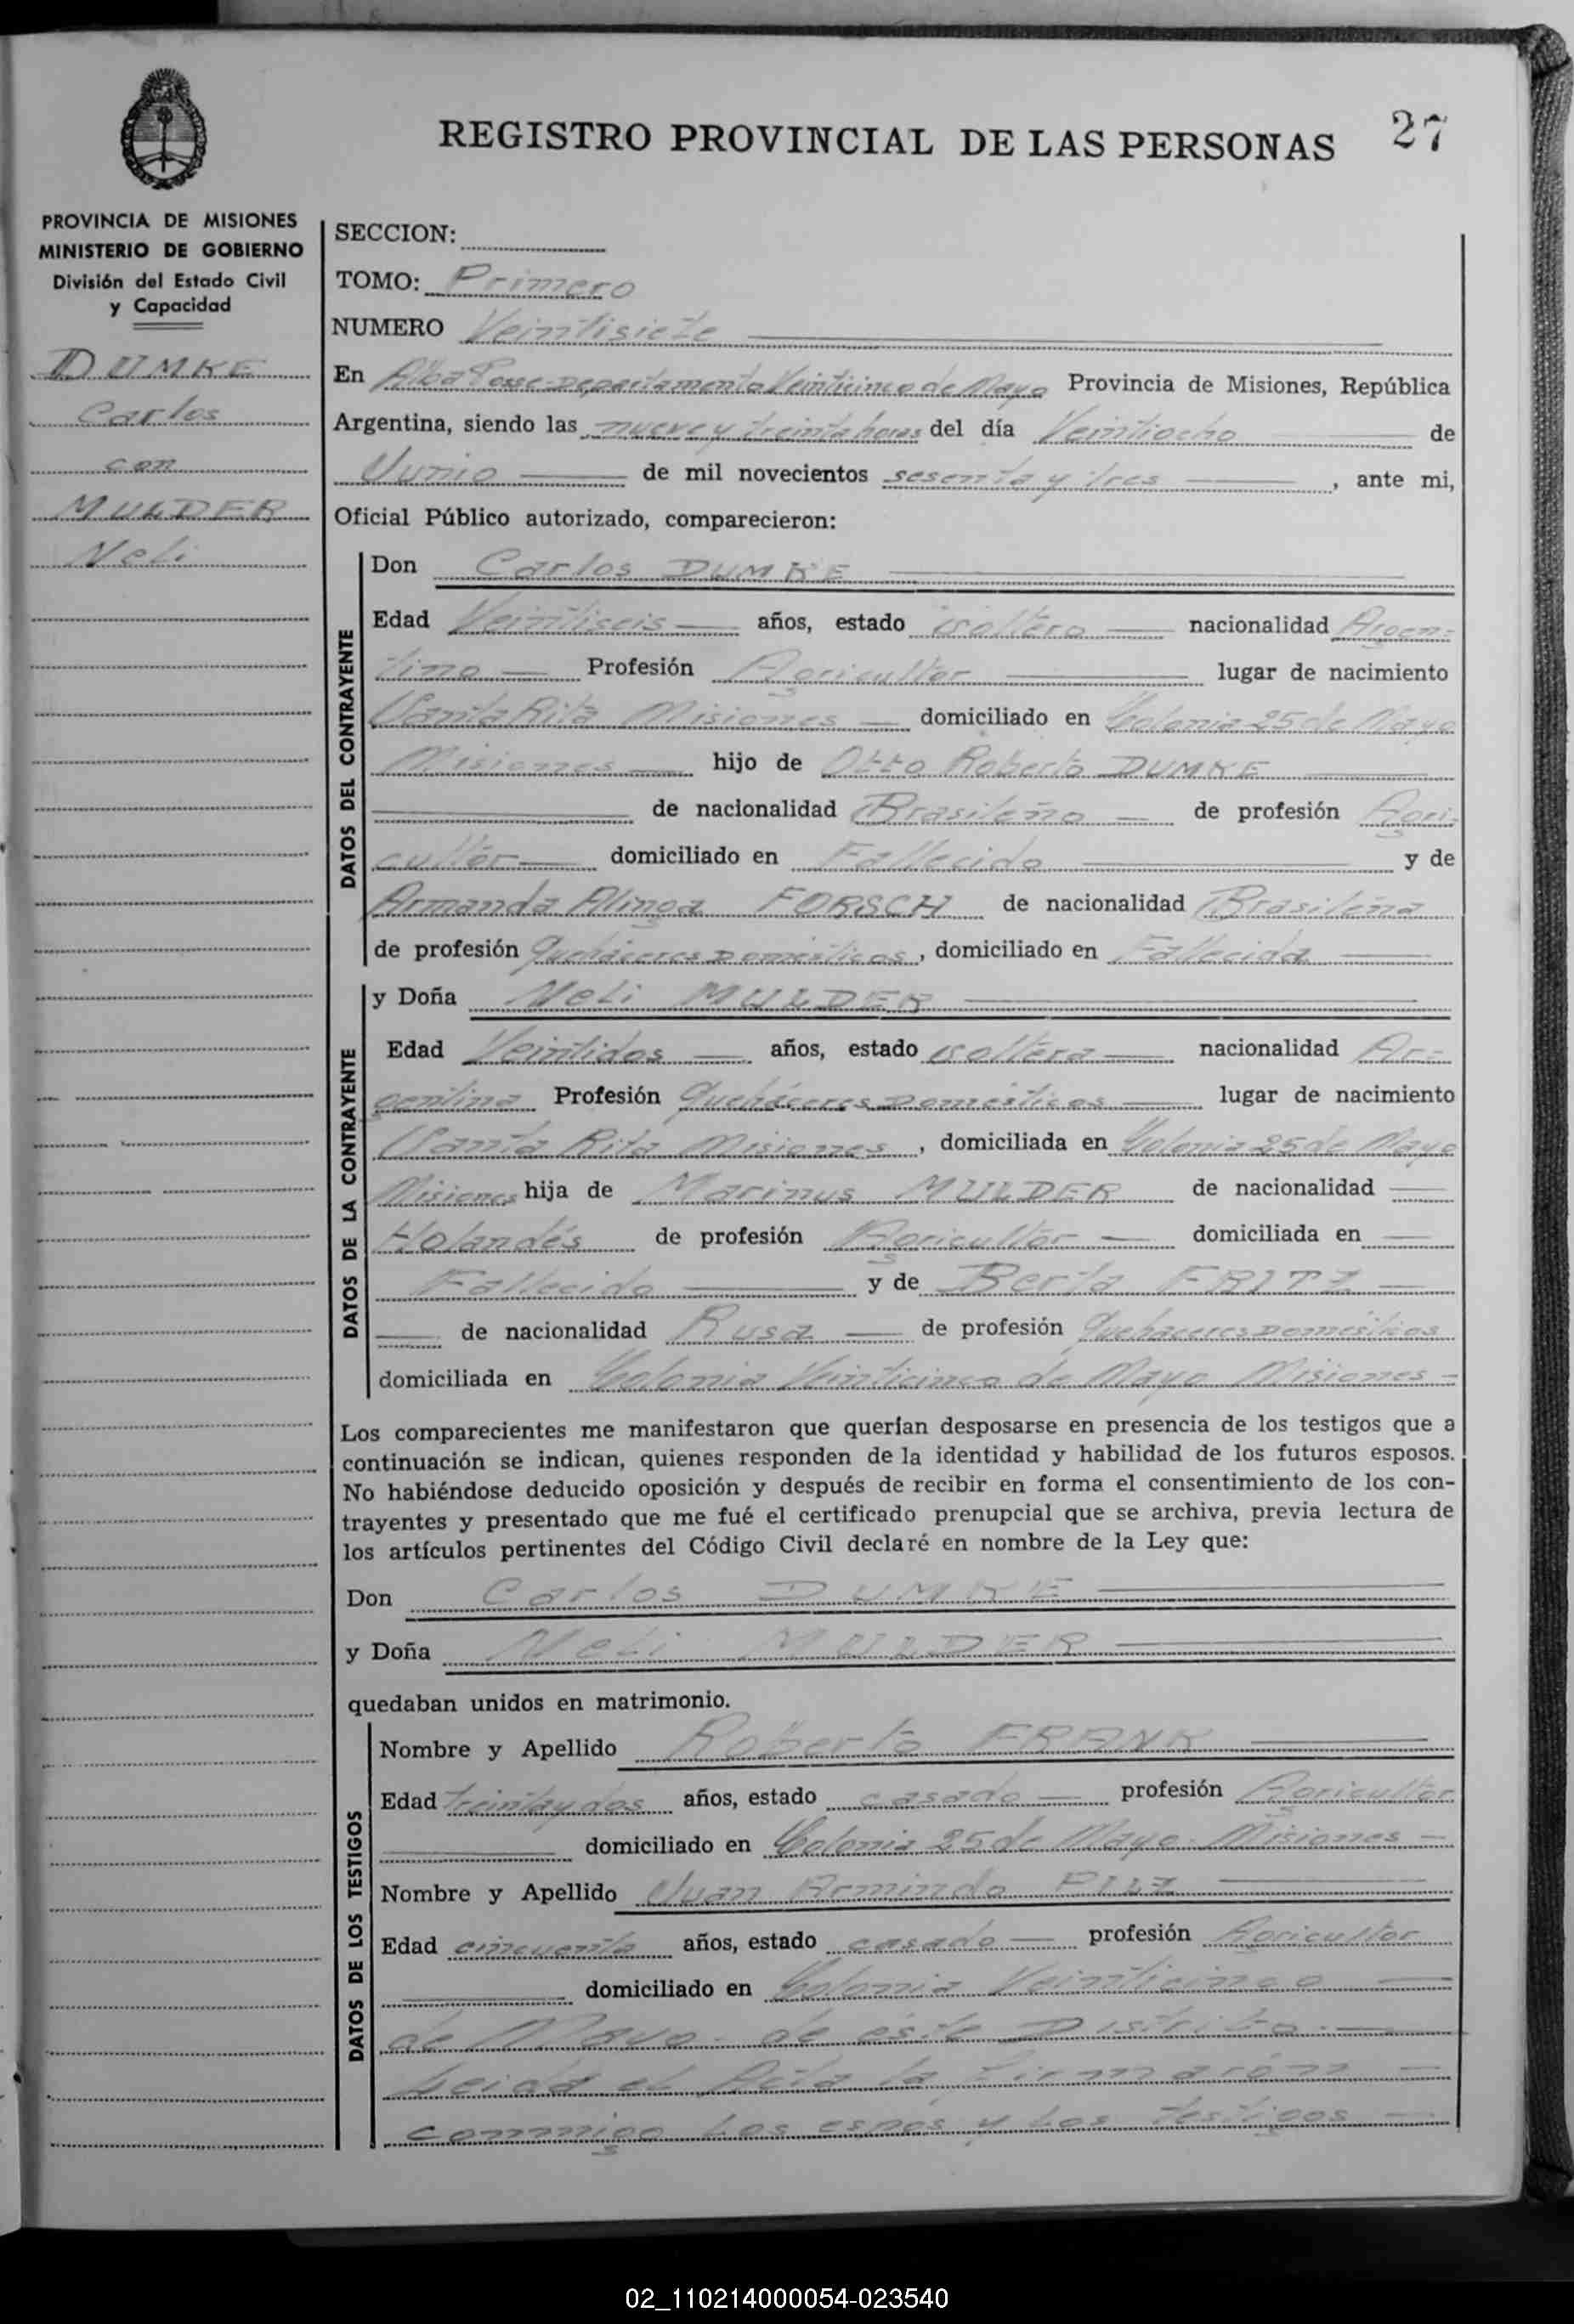 REGISTRO PROVINCIAL DE LAS PERSONAS 27
PROVINCIA DE MISIONES
MINISTERIO DE GOBIERNO
División del Estado Civil
y Capacidad
DUMKE
Carlos
con
MULDER
Neli
SECCION:
TOMO: Primero
NUMERO Veintisiete
En Alba Posse Departamento Veinticinco de Mayo Provincia de Misiones, República
Argentina, siendo las nueve y treinta horas del día Veintiocho de
Junio de mil novecientos sesenta y tres, ante mi,
Oficial Público autorizado, comparecieron:
DATOS DEL CONTRAYENTE
Don Carlos DUMKE
Edad Veintiseis años, estado soltero nacionalidad Argen-
tino Profesión Agricultor lugar de nacimiento
Santa Rita Misiones domiciliado en Colonia 25 de Mayo
Misiones hijo de Otto Roberto DUMKE
de nacionalidad Brasileña de profesión Agri-
cultor domiciliado en Fallecido y de
Armanda Alinga FORSCH de nacionalidad Brasileña
de profesión Quehaceres Domésticos, domiciliado en Fallecida
DATOS DE LA CONTRAYENTE
y Doña Neli MULDER
Edad Veintidos años, estado soltera nacionalidad Ar-
gentina Profesión Quehaceres Domésticos lugar de nacimiento
Santa Rita Misiones, domiciliada en Colonia 25 de Mayo
Misiones hija de Marinus MULDER de nacionalidad
Holandés de profesión Agricultor domiciliada en
Fallecido y de Berta FRITZ
de nacionalidad Rusa de profesión Quehaceres Domésticos
domiciliada en Colonia Veinticinco de Mayo Misiones
Los comparecientes me manifestaron que querían desposarse en presencia de los testigos que a
continuación se indican, quienes responden de la identidad y habilidad de los futuros esposos.
No habiéndose deducido oposición y después de recibir en forma el consentimiento de los con-
trayentes y presentado que me fué el certificado prenupcial que se archiva, previa lectura de
los artículos pertinentes del Código Civil declaré en nombre de la Ley que:
Don Carlos DUMKE
y Doña Neli MULDER
quedaban unidos en matrimonio.
DATOS DE LOS TESTIGOS
Nombre y Apellido Roberto FRANK
Edad treinta y dos años, estado casado profesión Agricultor
domiciliado en Colonia 25 de Mayo Misiones
Nombre y Apellido Juan Armindo PILZ
Edad cincuenta años, estado casado profesión Agricultor
domiciliado en Colonia Veinticinco
de Mayo de éste Distrito.
Leida el Acta la firmaron
conmigo los espos y los testigos
02_110214000054-023540